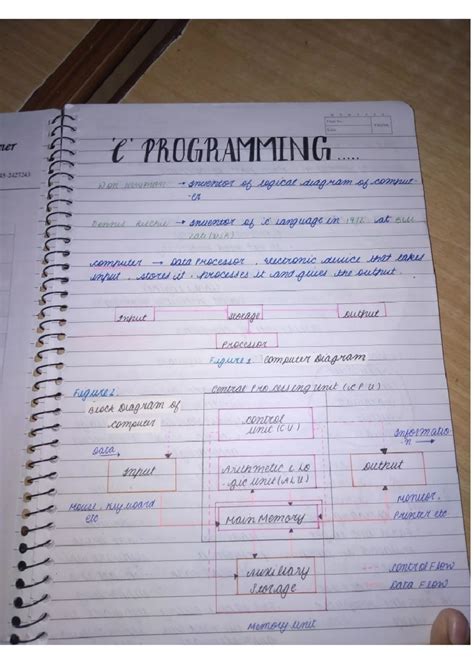 'C' PROGRAMMING.....
→ Inventor of logical diagram of comput-
er
→ Inventor of 'C' language in at Bell
Computer → Data Processor, electronic device that takes
input, stores it, processes it and gives the output.
Input Storage Output
Processor
Figure 1. Computer Diagram
Figure 2. Central Processing Unit (CPU)
Block Diagram of
Computer
Control
Unit (CU)
Informatio
n
Data
Input
Arithmetic & Lo
gic Unit (ALU)
Output
Mouse, Keyboard
etc
Main Memory
Monitor,
Printer etc
Auxiliary
Storage
Control Flow
Data Flow
Memory Unit